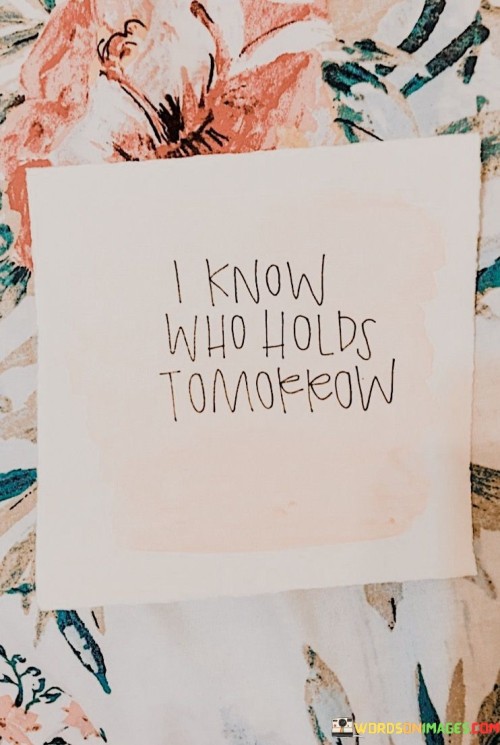 I KNOW
WHO HOLDS
TOMORROW
WORDSONIMAGES.COM